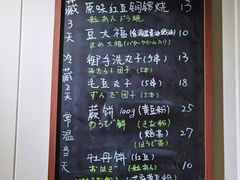 藏 原味红豆铜锣烧 13
3 粒あんどら焼
天 豆大福(含海盐黄油奶油) 12
まめ大福(バタークリーム入り)
冷 御手洗丸子(5串) 13
藏 みたらし団子(5本)
2 毛豆丸子(5串) 18
天 ずんだ団子(5本)
蕨饼 100g(黄豆粉) 25
常 わらび餅 (きな粉)
温 (焙茶) 27
当 (ほうじ茶)
天 牡丹饼(红豆) 10
おはぎ (粒あん)